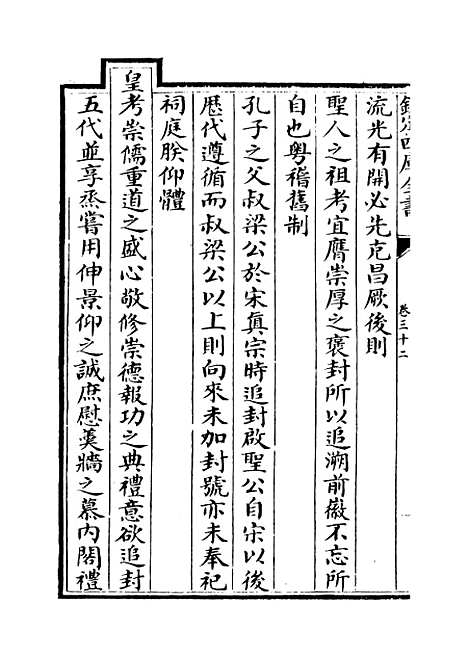 欽定四庫全書
卷三十二
流光有開必先克昌厥後則
聖人之祖考宜膺崇厚之褒封所以追溯前徽不忘所
自也粤稽舊制
孔子之父叔梁公於宋真宗時追封啟聖公自宋以後
歴代遵循而叔梁公以上則向來未加封號亦未奉祀
祠庭朕仰體
皇考崇儒重道之盛心敬修崇德報功之典禮意欲追封
五代並享烝嘗用伸景仰之誠庶慰羮牆之慕内閣禮